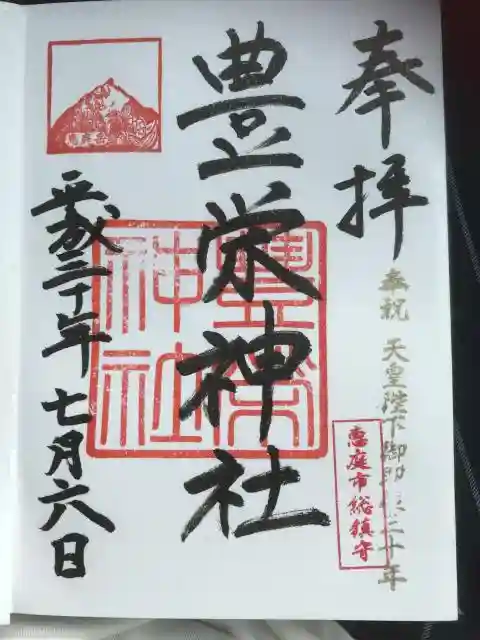 奉拝
奉祝 天皇陛下御即位三十年
恵庭市総鎮守
豊栄神社
豊栄神社
平成三十年 七月六日